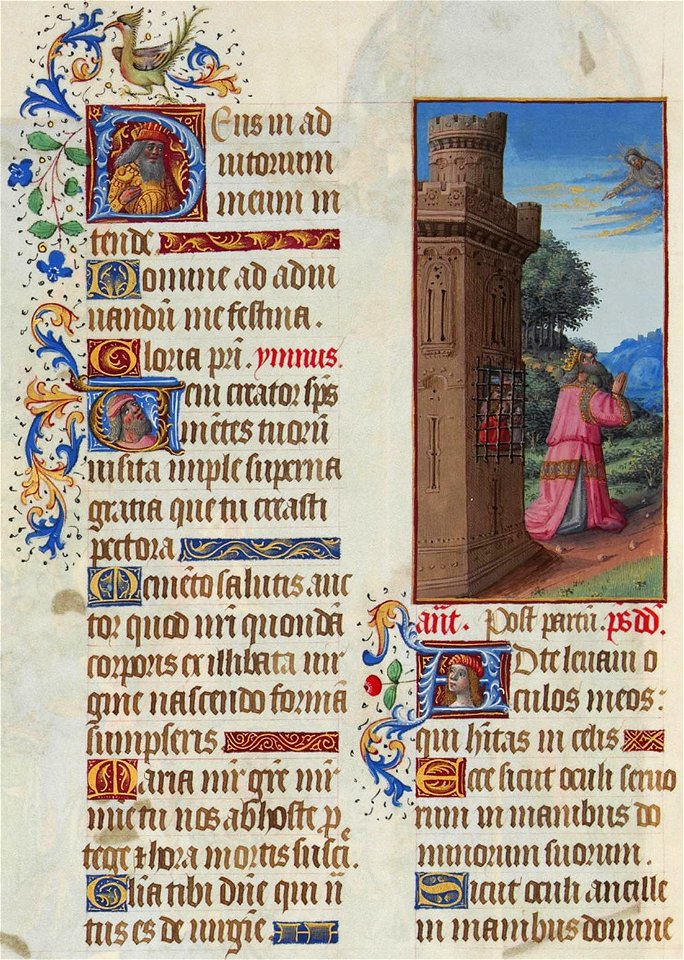 Deus in ad
iutorium
meum in
tende
Domine ad adiu
uandū me festina.
Gloria pr̄i. ymnus.
Ueni creator sp̄s
mētes tuorū
uisita imple superna
gratia que tu creasti
pectora
Memēto salutis auc
tor quod nr̄i quondā
corporis ex illibata uir
gine nascendo formā
sumpseris
Maria mr̄ gr̄e mr̄
mie tu nos ab hoste p̄
tege & hora mortis susci.e
Glīa tibi dn̄e qui n̄
tus es de uirgīe
ant̄. Post partū. ps dd̄.
Ad te leuaui o
culos meos:
qui hītas in celis
Ecce sicut oculi seruo
rum in manibus do
minorum suorum.
Sicut oculi ancille
in manibus domine